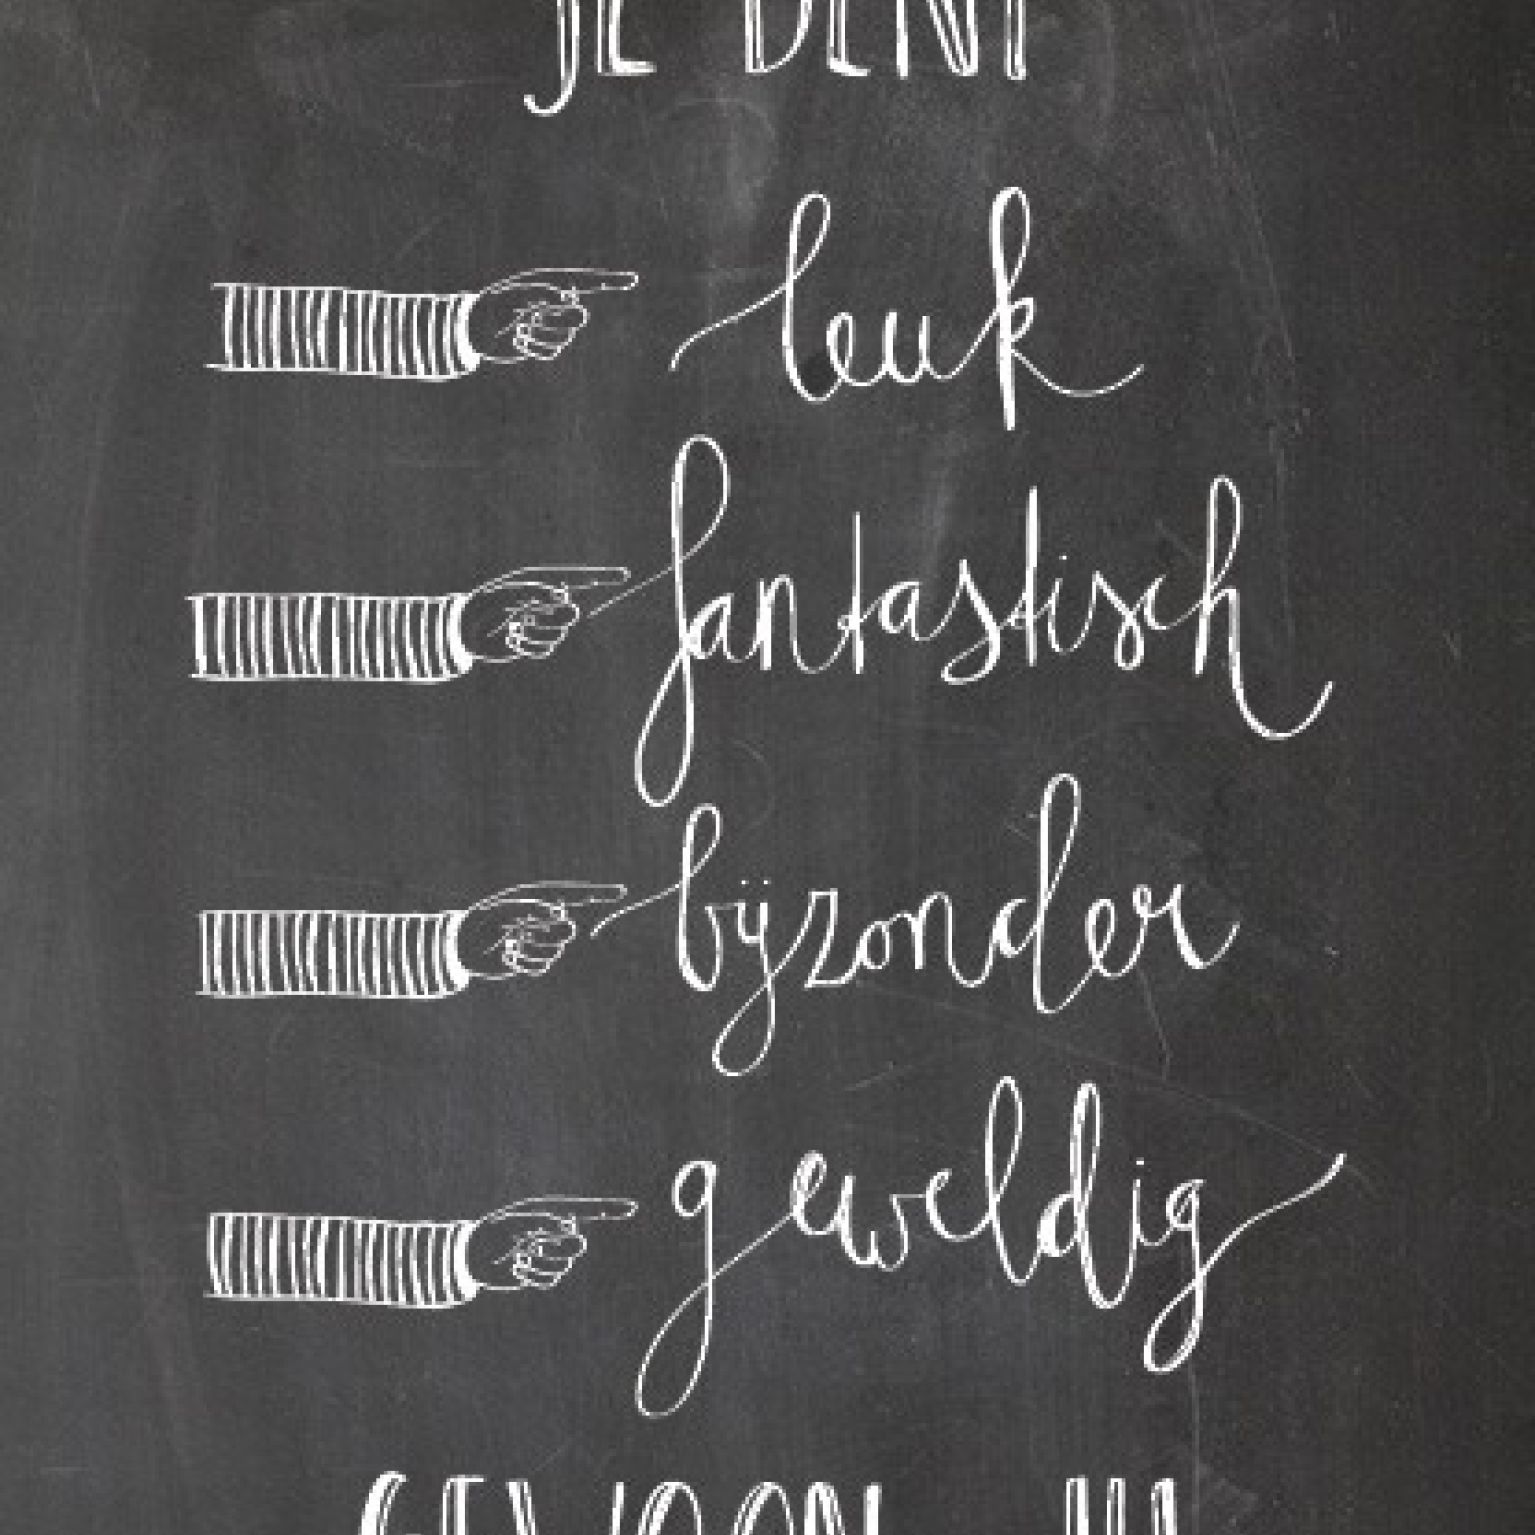 JE BENT
leuk
fantastisch
bijzonder
geweldig
GEWOON